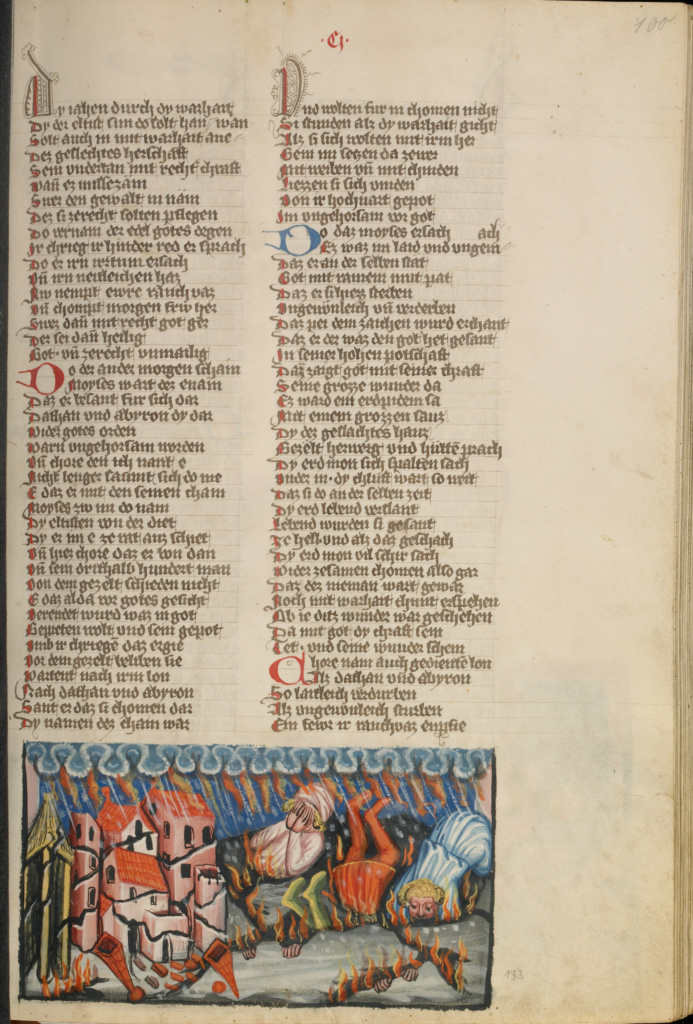 ·CJ·
100
Dy iahen durch dy warhait
Dy der eltist sun do solt han wan
Solt auch in mit warhait ane
Dez geslechtes herschaft
Sein vndertan mit recht chraft
Wan ez missezam
Swer den gewalt in nam
Dez si zerecht solten pflegen
Do vernam der edel gotes degen
Ir chrieg ir hinder red er sprach
Do er irn irrtum ersach
Vn irn neitleichen haz
Nw nempt ewre rauch vaz
Vn chompt morgen frw her
Swer dan mit recht got ger
Der sei dan heilig
Got vn zerecht vnmailig
Do der ander morgen schain
Moyses wart der enain
Daz er besant fur sich dar
Dathan vnd abyron dy dar
Wider gotes orden
Warn vngehorsam worden
Vn chore den ich nant e
Nicht lenger saumt sich do me
E daz er mit den seinen cham
Moyses zw im do nam
Dy eltisten von der diet
Dy er im e ze rat auz schiet
Vn hiez chore daz er von dan
Vn sein drithalb hundert man
Von dem gezelt schieden nicht
E daz alda vor gotes gesicht
Verendet wurd waz in got
Gepieten wolt vnd sein gepot
Vmb ir chriege daz ergie
Vor dem gezelt beliben sie
Wartent nach irm lon
Nach dathan vnd abyron
Sant er daz si chomen dar
Dy namen der cham war
Vnd wolten fur in chomen nicht
Si stunden alz dy warhait gicht
Alz si sich wolten mit irm her
Gein im setzen da zewer
Mit weiben vn mit chinden
Liezzen si sich vinden
Von ir hochuart gepot
Im vngehorsam vor got
Do daz moyses ersach ach
Ez waz im laid vnd vngem
Daz er an der selben stat
Got mit rainem mut pat
Daz er si hiez sterben
Vngewonleich vn verderben
Daz pei dem zaichen wurd erchant
Daz er der waz den got het gesant
In seiner hohen potschaft
Daz zaigt got mit seiner chraft
Seine grozze wunder da
Ez ward ein erdpidem sa
Mit einem grozzen sauz
Dy dez geslachtes hauz
Gezelt herwerg vnd hutte prach
Dy erd man sich spalten sach
Vnder in dy chluft wart so weit
Daz si do an der selben zeit
Dy erd lebend verslant
Lebend wurden si gesant
Ze hell vnd alz daz geschach
Dy erd man vil schir sach
Wider zesamen chomen also gar
Daz dez nieman wart gewar
Noch mit warhait chunt erspehen
Ob ie ditz wunder war geschehen
Da mit got dy chraft sein
Tet vnd seine wunder schein
Chore nam auch gediente lon
Alz dathan vnd abyron
So laitleich verdurben
Alz vngewonleich sturben
Ein fewr ir rauchvaz enpfie
133